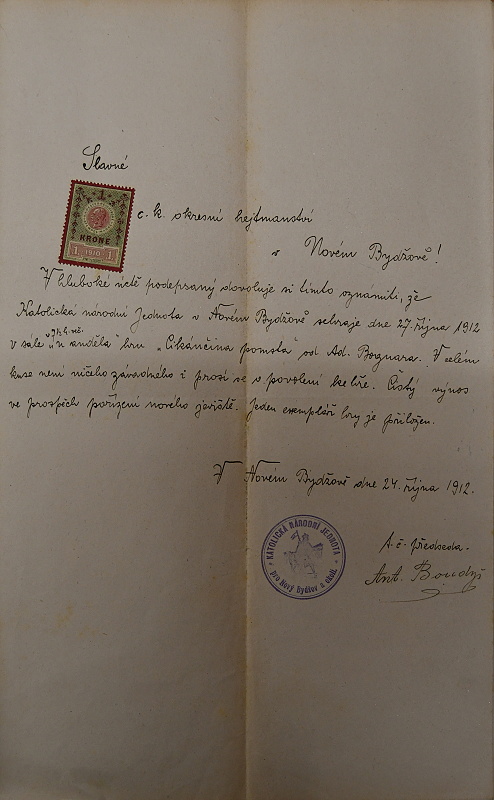 Slavné
1
KRONE
1 1910 1
c. k. okresní hejtmanství
v Novém Bydžově!
V hluboké úctě podepsaný dovoluje si tímto oznámiti, že
Katolická národní Jednota v Novém Bydžově sehraje dne 27. října 1912
v sále „u anděla“ hru „Cikánčina pomsta“ od Ad. Bognara. V celém
kuse není ničeho závadného i prosí se o povolení ke hře. Čistý výnos
ve prospěch pořízení nového jeviště. Jeden exemplář hry je přiložen.
V Novém Bydžově dne 24. října 1912.
KATOLICKÁ NÁRODNÍ JEDNOTA
pro Nový Bydžov a okolí
t. č. předseda.
Ant. Boudyš